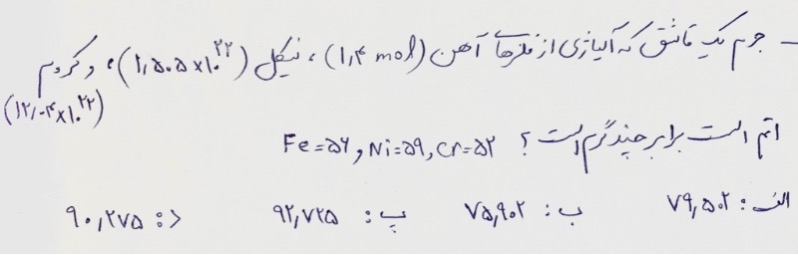 - جرم یک قاشق که آلیاژی از فلزهای آهن (۱٫۴ mol)، نیکل (۱٫۵۰۵×۱۰^۲۲)، و کروم
(۱۲٫۰۴×۱۰^۲۲)
اتم است برابر چند گرم است؟ Fe=۵۶, Ni=۵۹, Cr=۵۲
الف: ۷۹٫۵۰۲ ب: ۷۵٫۹۰۲ پ: ۹۲٫۷۲۵ د: ۹۰٫۲۷۵